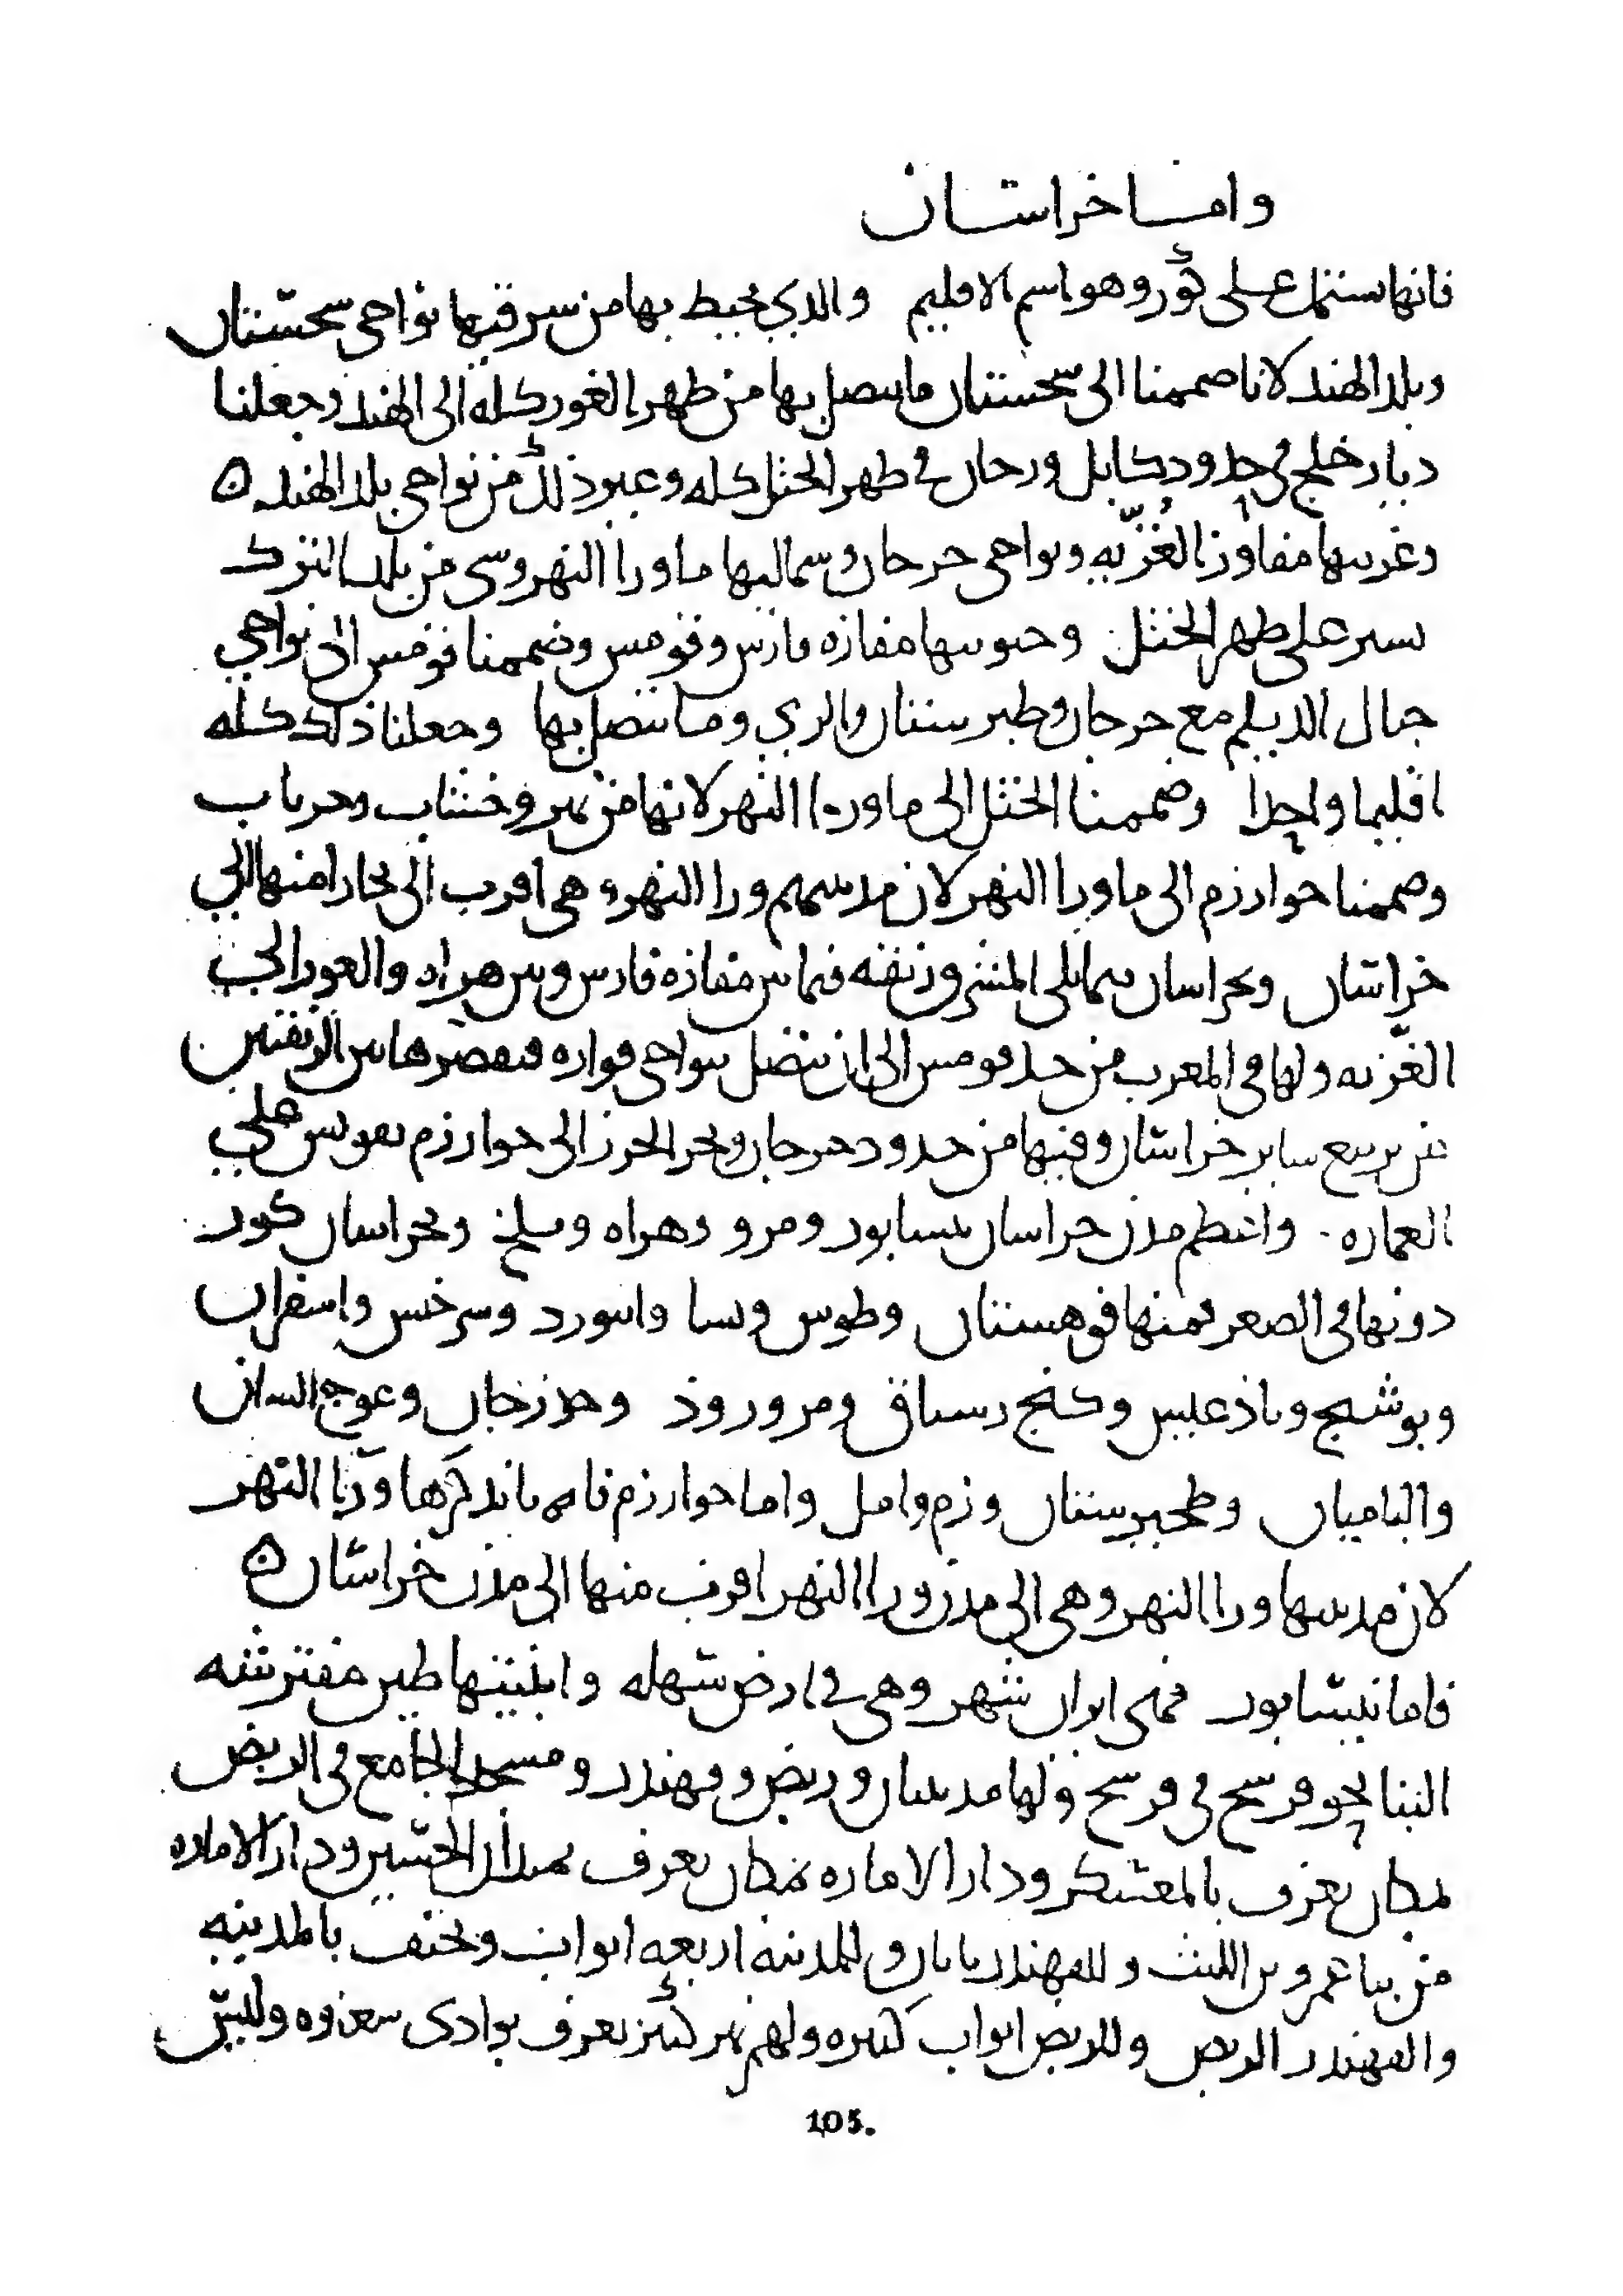 واما خراسان
فانها ستمل على كور وهو اسم الاقليم والذي يحيط بها من سرقيها نواحي سجستان
وبلد الهند لانا صممنا الى سجستان ما يتصل بها من ظهر الغور كله الى الهند وجعلنا
ديار خلج في حدود كابل ورحان في ظهر الختل كله وغير ذلك من نواحي بلد الهند ه
وغربيها مفاوز الغزيه ونواحي جرجان وسماليها ما ورا النهر وسى من بلد الترك
يسير على ظهر الختل وجنوبيها مفازه فارس وقومس وضممنا قومس الى نواحي
جبال الديلم مع جرجان وطبرستان والري وما يتصل بها وجعلنا ذلك كله
اقليما واحدا وضممنا الختل الى ما ورا النهر لانها من نهر وخشاب وجرياب
وضممنا خوارزم الى ما ورا النهر لان مدينتهم ورا النهر وهي اقرب الى بخارا منها الى
خراسان وبخراسان مما يلي المشرق زنقه فيما بين مفازه فارس وبين هراه والغور الى
الغزيه ولها في المغرب من حد قومس الى ان يتصل بنواحي فراوه فيقصر هاتين الزنقتين
عن تربيع ساير خراسان وفيها من حدود جرجان وبحر الخزر الى خوارزم تقويس على
العماره واعظم مدن خراسان نيسابور ومرو وهراه وبلخ وبخراسان كور
دونها في الصغر فمنها قوهستان وطوس ونسا وابيورد وسرخس واسفراين
وبوشنج وباذغيس وكنج رستاق ومروروذ وجوزجان وغرج السار
والباميان وطخيرستان وزم وامل واما خوارزم فانه نا نذكرها ورا النهر
لان مدينتها ورا النهر وهي الى مدن ورا النهر اقرب منها الى مدن خراسان ه
فاما نيسابور فهي ابران شهر وهي في ارض سهله وابنيتها طين مفترشه
البنا نحو فرسخ في فرسخ ولها مدينتان وربض وقهندز ومسجد الجامع في الربض
بمكان يعرف بالمعسكر ودار الاماره بمكان يعرف بميدان الحسين ودار الاماره
من بنا عمرو بن الليث وللقهندز بابان وللمدينه اربعه ابواب ويحتف بالمدينه
والقهندز الربض وللربض ابواب كثيره ولهم نهر كبير يعرف بوادي سغاوه وليس
105.